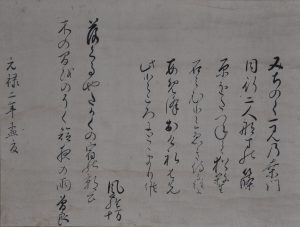 みちのく一見の桑門
同行二人那須の篠
原をたつねて猶殺生
石みむと急き侍る程に
あめ降り出けれは先
此ところにとゝまり候
風羅坊
落くるやたかくの宿の郭公
木の間をのそく短夜の雨 曽良
元禄二年孟夏